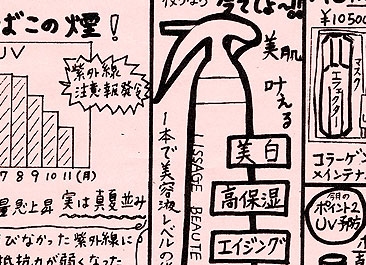 ばこの煙！
UV
紫外線
注意報発令
7 8 9 10 11(月)
量急上昇 実は真夏並み
びなかった紫外線に
抵抗力が弱くなった
今でしょ〜!!
美肌
叶える
1本で美容液レベルの
LISSAGE BEAUTE
美白
高保湿
エイジング
¥10500
マスク
エフェクター
コラーゲン
メイテナ
今月の
ポイント2
UV予防